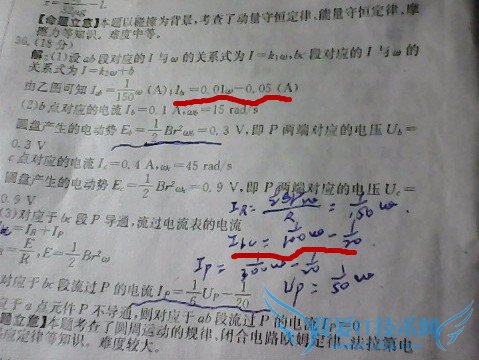 【命题立意】本题以碰撞为背景,考查了动量守恒定律、能量守恒定律、摩
擦力等知识。难度中等。
36. (18 分)
解:(1)设 ab 段对应的 I 与 ω 的关系式为 I=k₁ω, bc 段对应的 I 与 ω 的
关系式为 I=k₂ω+b
由乙图可知 Iab=1/150 ω (A); Ibc=0.01ω-0.05 (A)
(2)b 点对应的电流 Ib=0.1 A, ωb=15 rad/s
圆盘产生的电动势 Eb=1/2 Br²ωb=0.3 V, 即 P 两端对应的电压 Ub=
0.3 V
c 点对应的电流 Ic=0.4 A, ωc=45 rad/s
圆盘产生的电动势 Ec=1/2 Br²ωc=0.9 V, 即 P 两端对应的电压 Uc=
0.9 V
(3)对应于 bc 段 P 导通,流过电流表的电流
=IR+IP
=E/R, E=1/2 Br²ω
对应于 bc 段流过 P 的电流 IP=1/6 UP-1/20
应于 a 点元件 P 不导通,则对应于 ab 段流过 P 的电流 IP
题立意】本题考查了圆周运动的规律、闭合电路欧姆定律、法拉第电
应定律等知识。难度较大。
= 1/150 ω
Ibc = 1/100 ω - 1/20
IP = 1/300 ω - 1/20
UP = 1/50 ω